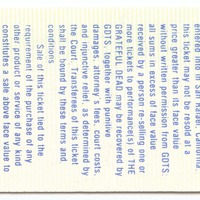 entered into in San Rafael, California.
this ticket may not be resold at a
price greater than its face value
without written permission from GDTS.
all sums in excess of face value
received by a person re-selling one or
more tickets to performance(s) of THE
GRATEFUL DEAD may be recovered by
GDTS, together with punitive
damages, attorney's fees, court costs,
and injunctive relief, as determined by
the court. Transferees of this ticket
shall be bound by these terms and
conditions.
Sale of this ticket tied to the
requirement of the purchase of any
other product or service of any kind
constitutes a sale above face value to